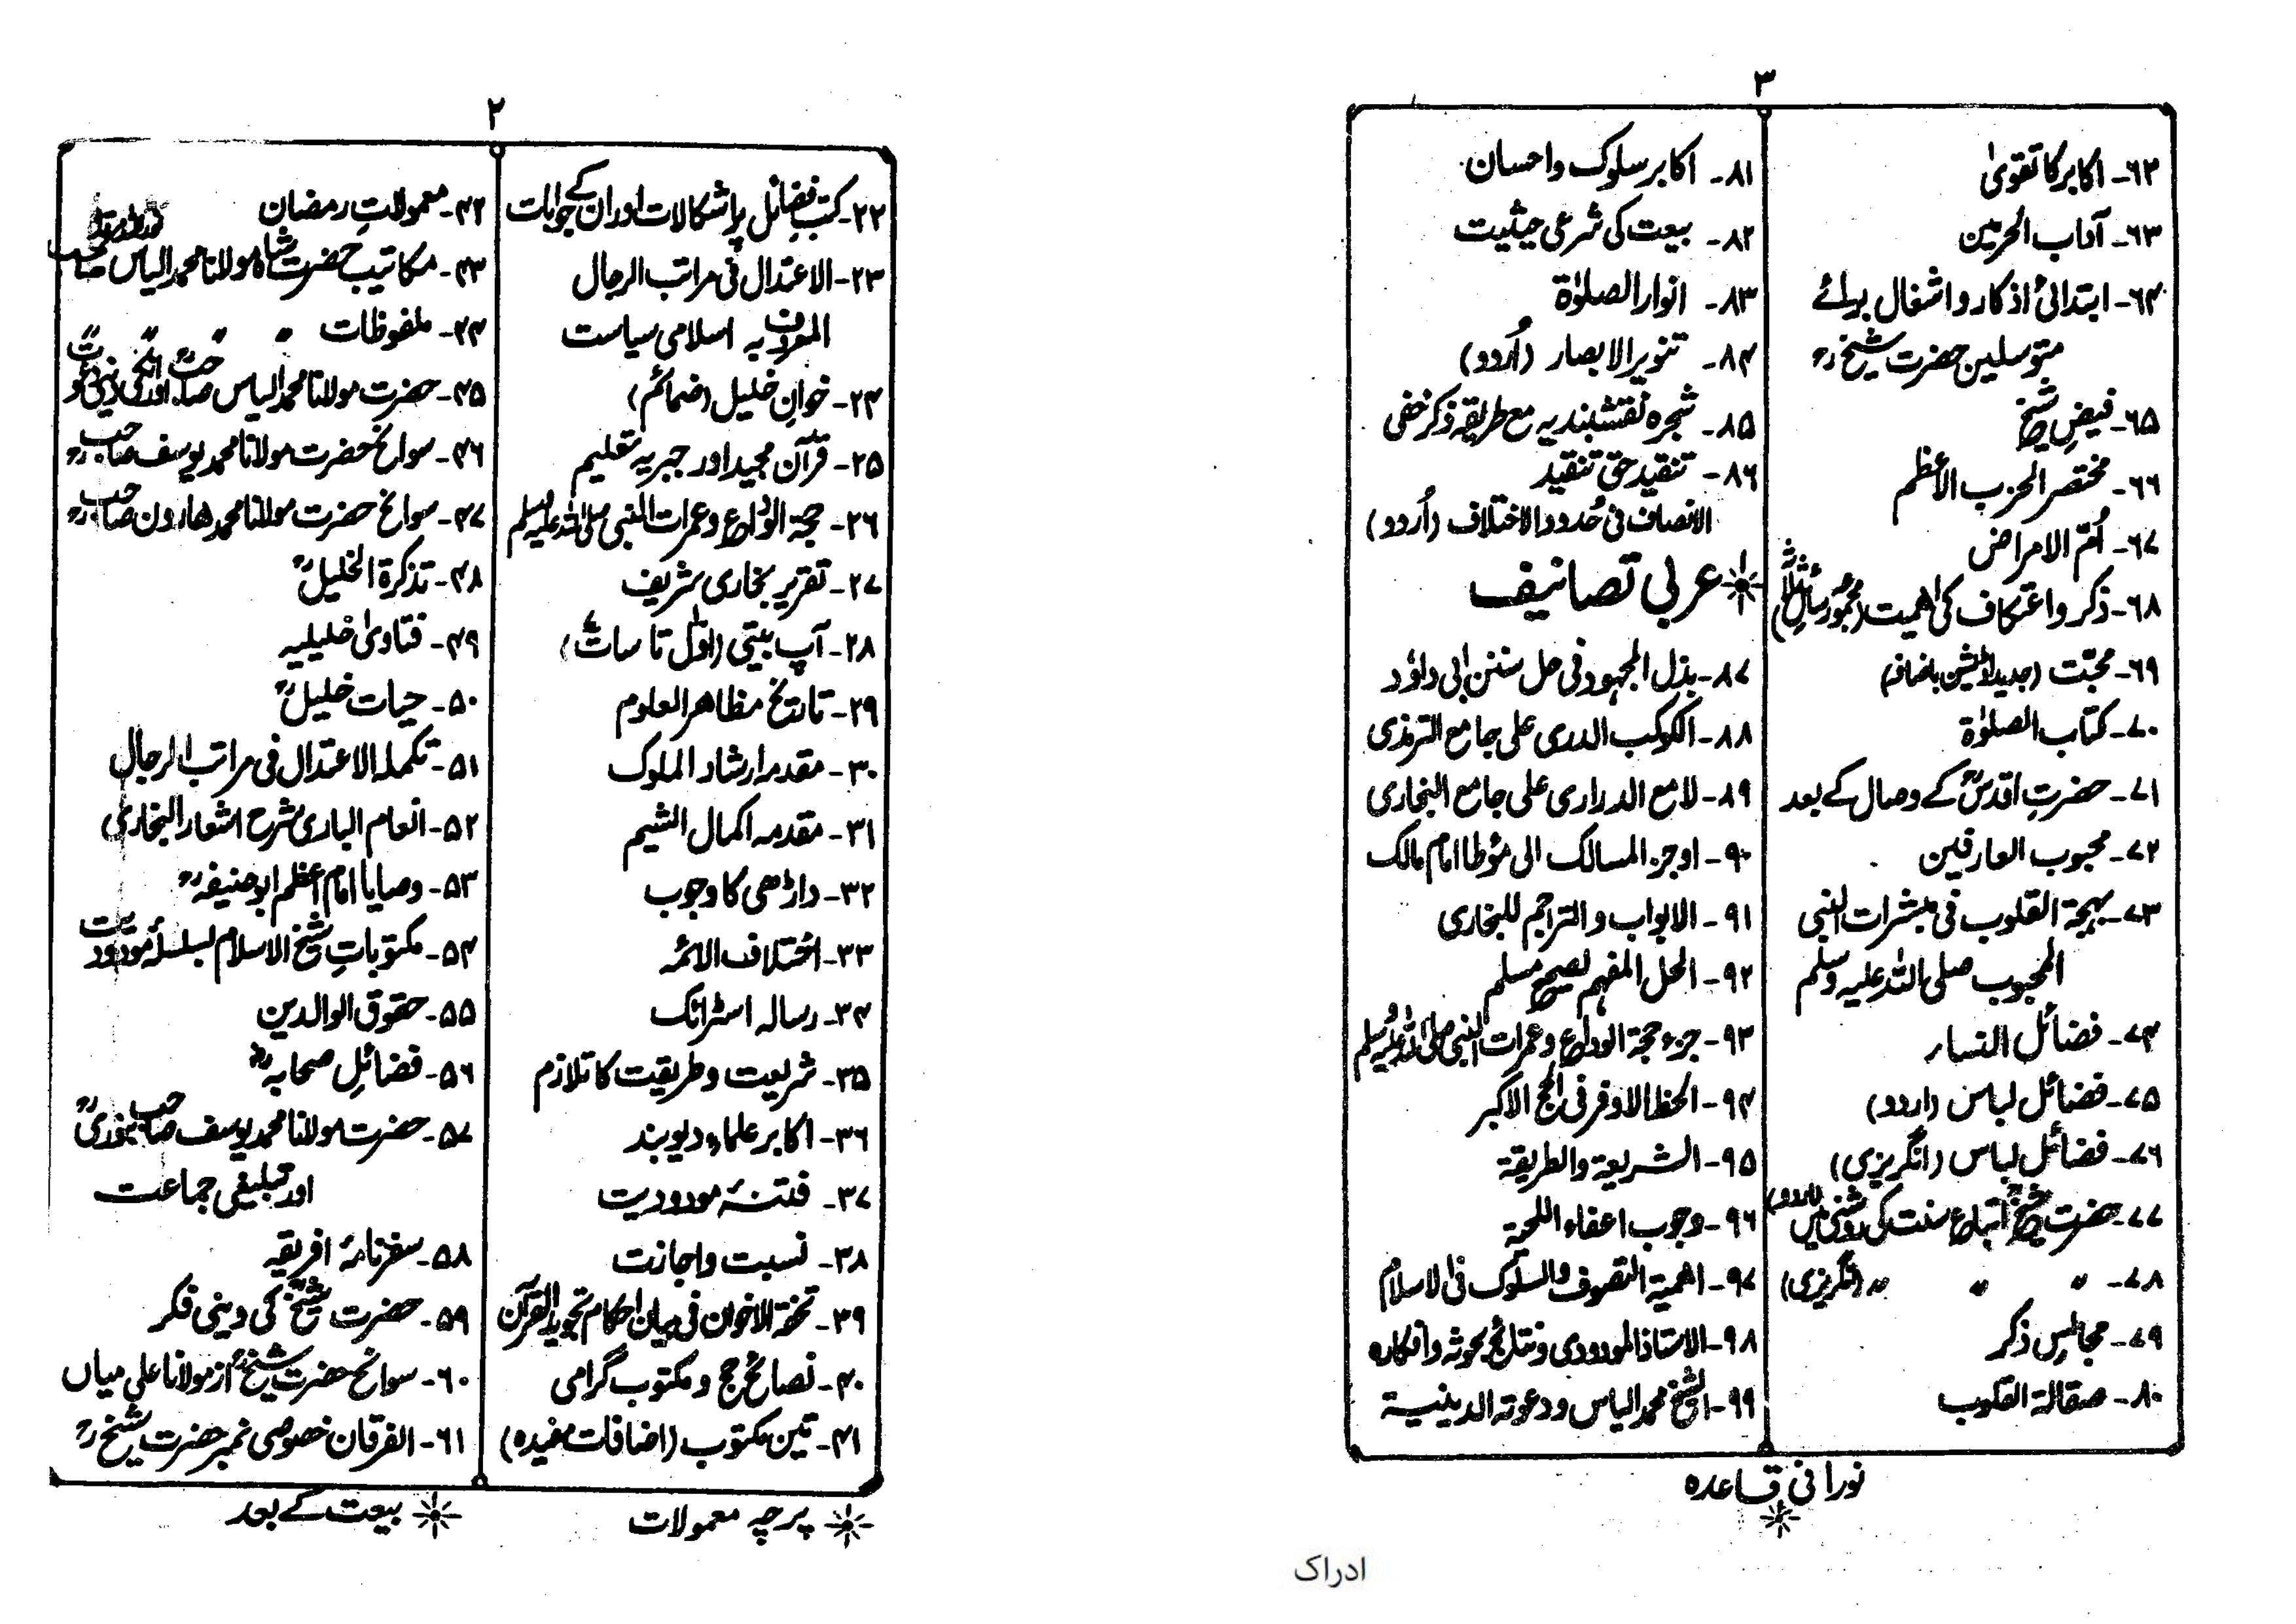 ۲
۲۲- کتب فضائل پر اشکالات اور ان کے جوابات
۲۳- الاعتدال فی مراتب الرجال
المعروف بہ اسلامی سیاست
۲۴- خوانِ خلیل (ضمائم)
۲۵- قرآن مجید اور جبریہ تعلیم
۲۶- حجۃ الوداع وعمرات النبی صلی اللہ علیہ وسلم
۲۷- تقریر بخاری شریف
۲۸- آپ بیتی (اول تا سات)
۲۹- تاریخ مظاہر العلوم
۳۰- مقدمہ ارشاد الملوک
۳۱- مقدمہ اکمال الشیم
۳۲- داڑھی کا وجوب
۳۳- اختلاف الائمہ
۳۴- رسالہ اسٹرائک
۳۵- شریعت وطریقت کا تلازم
۳۶- اکابر علماء دیوبند
۳۷- فتنۂ مودودیت
۳۸- نسبت واجازت
۳۹- تحفۃ الاخوان فی بیان احکام تجوید القرآن
۴۰- نصائح حج ومکتوب گرامی
۴۱- تین مکتوب (اضافات مفیدہ)
۴۲- معمولاتِ رمضان
۴۳- مکاتیب حضرت شاہ مولانا محمد الیاس صاحب
۴۴- ملفوظات 〃 〃
۴۵- حضرت مولانا محمد الیاس صاحبؒ اور انکی دینی دعوت
۴۶- سوانح حضرت مولانا محمد یوسف صاحبؒ
۴۷- سوانح حضرت مولانا محمد ھارون صاحبؒ
۴۸- تذکرۃ الخلیلؒ
۴۹- فتاویٰ خلیلیہ
۵۰- حیات خلیلؒ
۵۱- تکملہ الاعتدال فی مراتب الرجال
۵۲- انعام الباری شرح اشعار البخاری
۵۳- وصایا امام اعظم ابو حنیفہؒ
۵۴- مکتوباتِ شیخ الاسلام بسلسلۂ مودودیت
۵۵- حقوق الوالدین
۵۶- فضائلِ صحابہؓ
۵۷- حضرت مولانا محمد یوسف صاحب بنوریؒ
اور تبلیغی جماعت
۵۸- سفرنامۂ افریقہ
۵۹- حضرت شیخؒ کی دینی فکر
۶۰- سوانح حضرت شیخؒ از مولانا علی میاں
۶۱- الفرقان خصوصی نمبر حضرت شیخؒ
پرچہ معمولات
بیعت کے بعد
۳
۶۲- اکابر کا تقویٰ
۶۳- آداب الحرمین
۶۴- ابتدائی اذکار واشغال برائے
متوسلین حضرت شیخؒ
۶۵- فیضِ شیخ
۶۶- مختصر الحزب الاعظم
۶۷- اُمّ الامراض
۶۸- ذکر واعتکاف کی اہمیت (مجموعہ رسائل ثلاثہ)
۶۹- محبّت (جدید ایڈیشن باضافہ)
۷۰- کتاب الصلوٰۃ
۷۱- حضرتِ اقدسؒ کے وصال کے بعد
۷۲- محبوب العارفین
۷۳- بہجۃ القلوب فی مبشرات النبی
المحبوب صلی اللہ علیہ وسلم
۷۴- فضائل النساء
۷۵- فضائل لباس (اردو)
۷۶- فضائل لباس (انگریزی)
۷۷- حضرت شیخؒ اتباع سنت کی روشنی میں (اردو)
۷۸- 〃 〃 〃 (انگریزی)
۷۹- مجالسِ ذکر
۸۰- صقالۃ القلوب
۸۱- اکابر سلوک واحسان
۸۲- بیعت کی شرعی حیثیت
۸۳- انوار الصلوٰۃ
۸۴- تنویر الابصار (اُردو)
۸۵- شجرہ نقشبندیہ مع طریقہ ذکر خفی
۸۶- تنقید حق تنقید
الانصاف فی حُدود الاختلاف (اُردو)
عربی تصانیف
۸۷- بذل المجہود فی حل سنن ابی داؤد
۸۸- الکوکب الدری علی جامع الترمذی
۸۹- لامع الدراری علی جامع البخاری
۹۰- اوجز المسالک الی مؤطا امام مالک
۹۱- الابواب والتراجم للبخاری
۹۲- الحل المفہم لصحیح مسلم
۹۳- جزء حجۃ الوداع وعمرات النبی صلی اللہ علیہ وسلم
۹۴- الحظ الاوفر فی الحج الاکبر
۹۵- الشریعۃ والطریقۃ
۹۶- وجوب اعفاء اللحیۃ
۹۷- اھمیۃ التصوف والسلوک فی الاسلام
۹۸- الاستاذ المودودی ونتائج بحوثہ وافکارہ
۹۹- الشیخ محمد الیاس ودعوتہ الدینیۃ
نورانی قاعدہ
ادراک